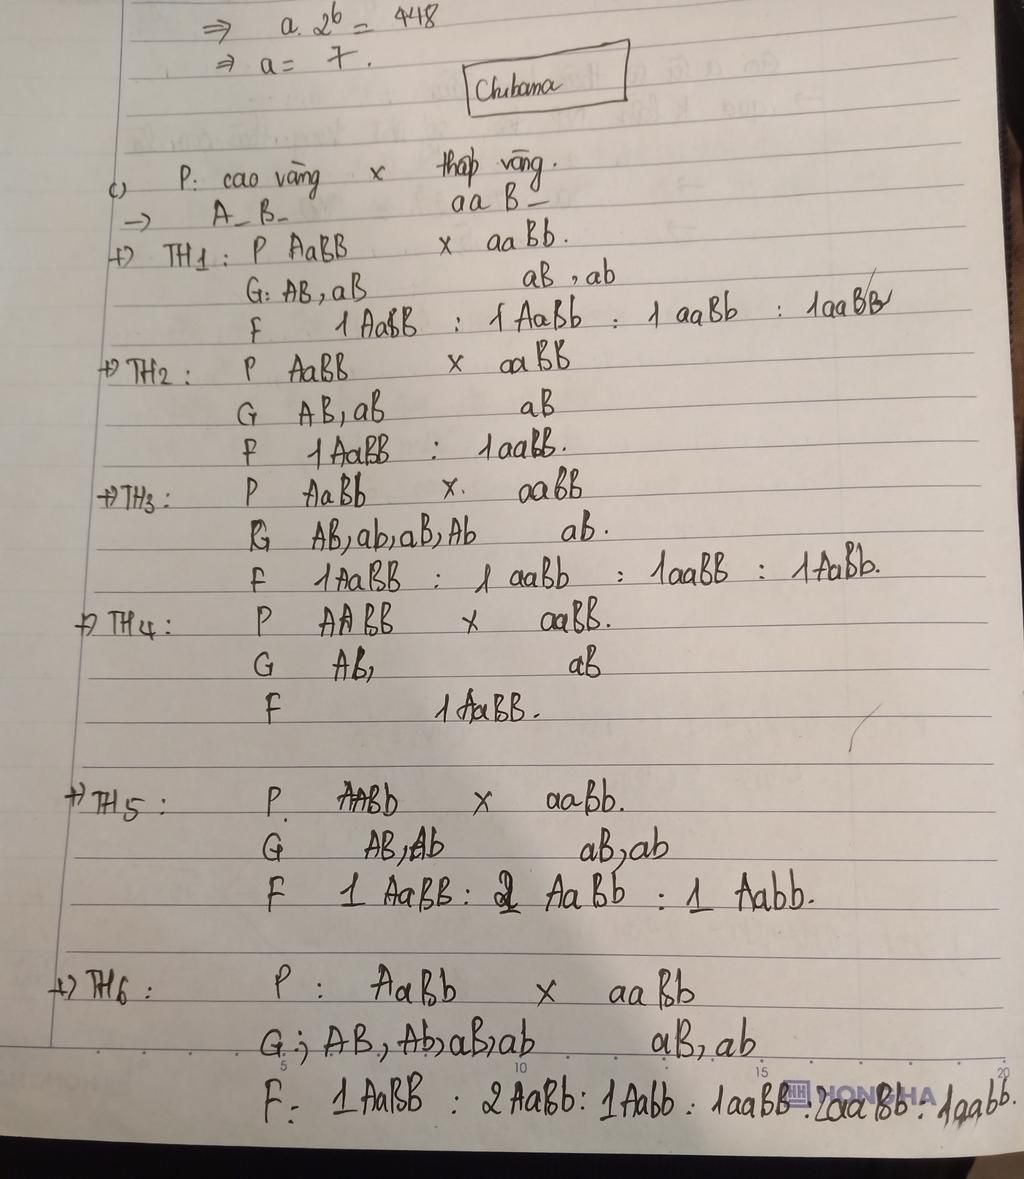 ⇒ a. 2^b = 448
⇒ a = 7.
Chibana
c) P: cao vàng x thấp vàng.
→ A_B_ aaB_
+) TH1: P AaBB x aaBb.
G: AB, aB aB, ab
F 1 AaBB : 1 AaBb : 1 aaBb : 1aaBB
+) TH2: P AaBB x aaBB
G AB, aB aB
F 1AaBB : 1aaBB.
+) TH3: P AaBb x. aaBB
G AB, ab, aB, Ab ab.
F 1AaBB : 1 aaBb : 1aaBB : 1AaBb.
+) TH4: P AABB x aaBB.
G AB, aB
F 1AaBB.
+) TH5: P. AABb x aaBb.
G AB, Ab aB, ab
F 1 AaBB : 2 AaBb : 1 Aabb.
+) TH6: P: AaBb x aaBb
G: AB, Ab, aB, ab aB, ab
5 10 15 20
F: 1AaBB : 2AaBb : 1Aabb : 1aaBB : 2aaBb : 1aabb.
HH HONG HA